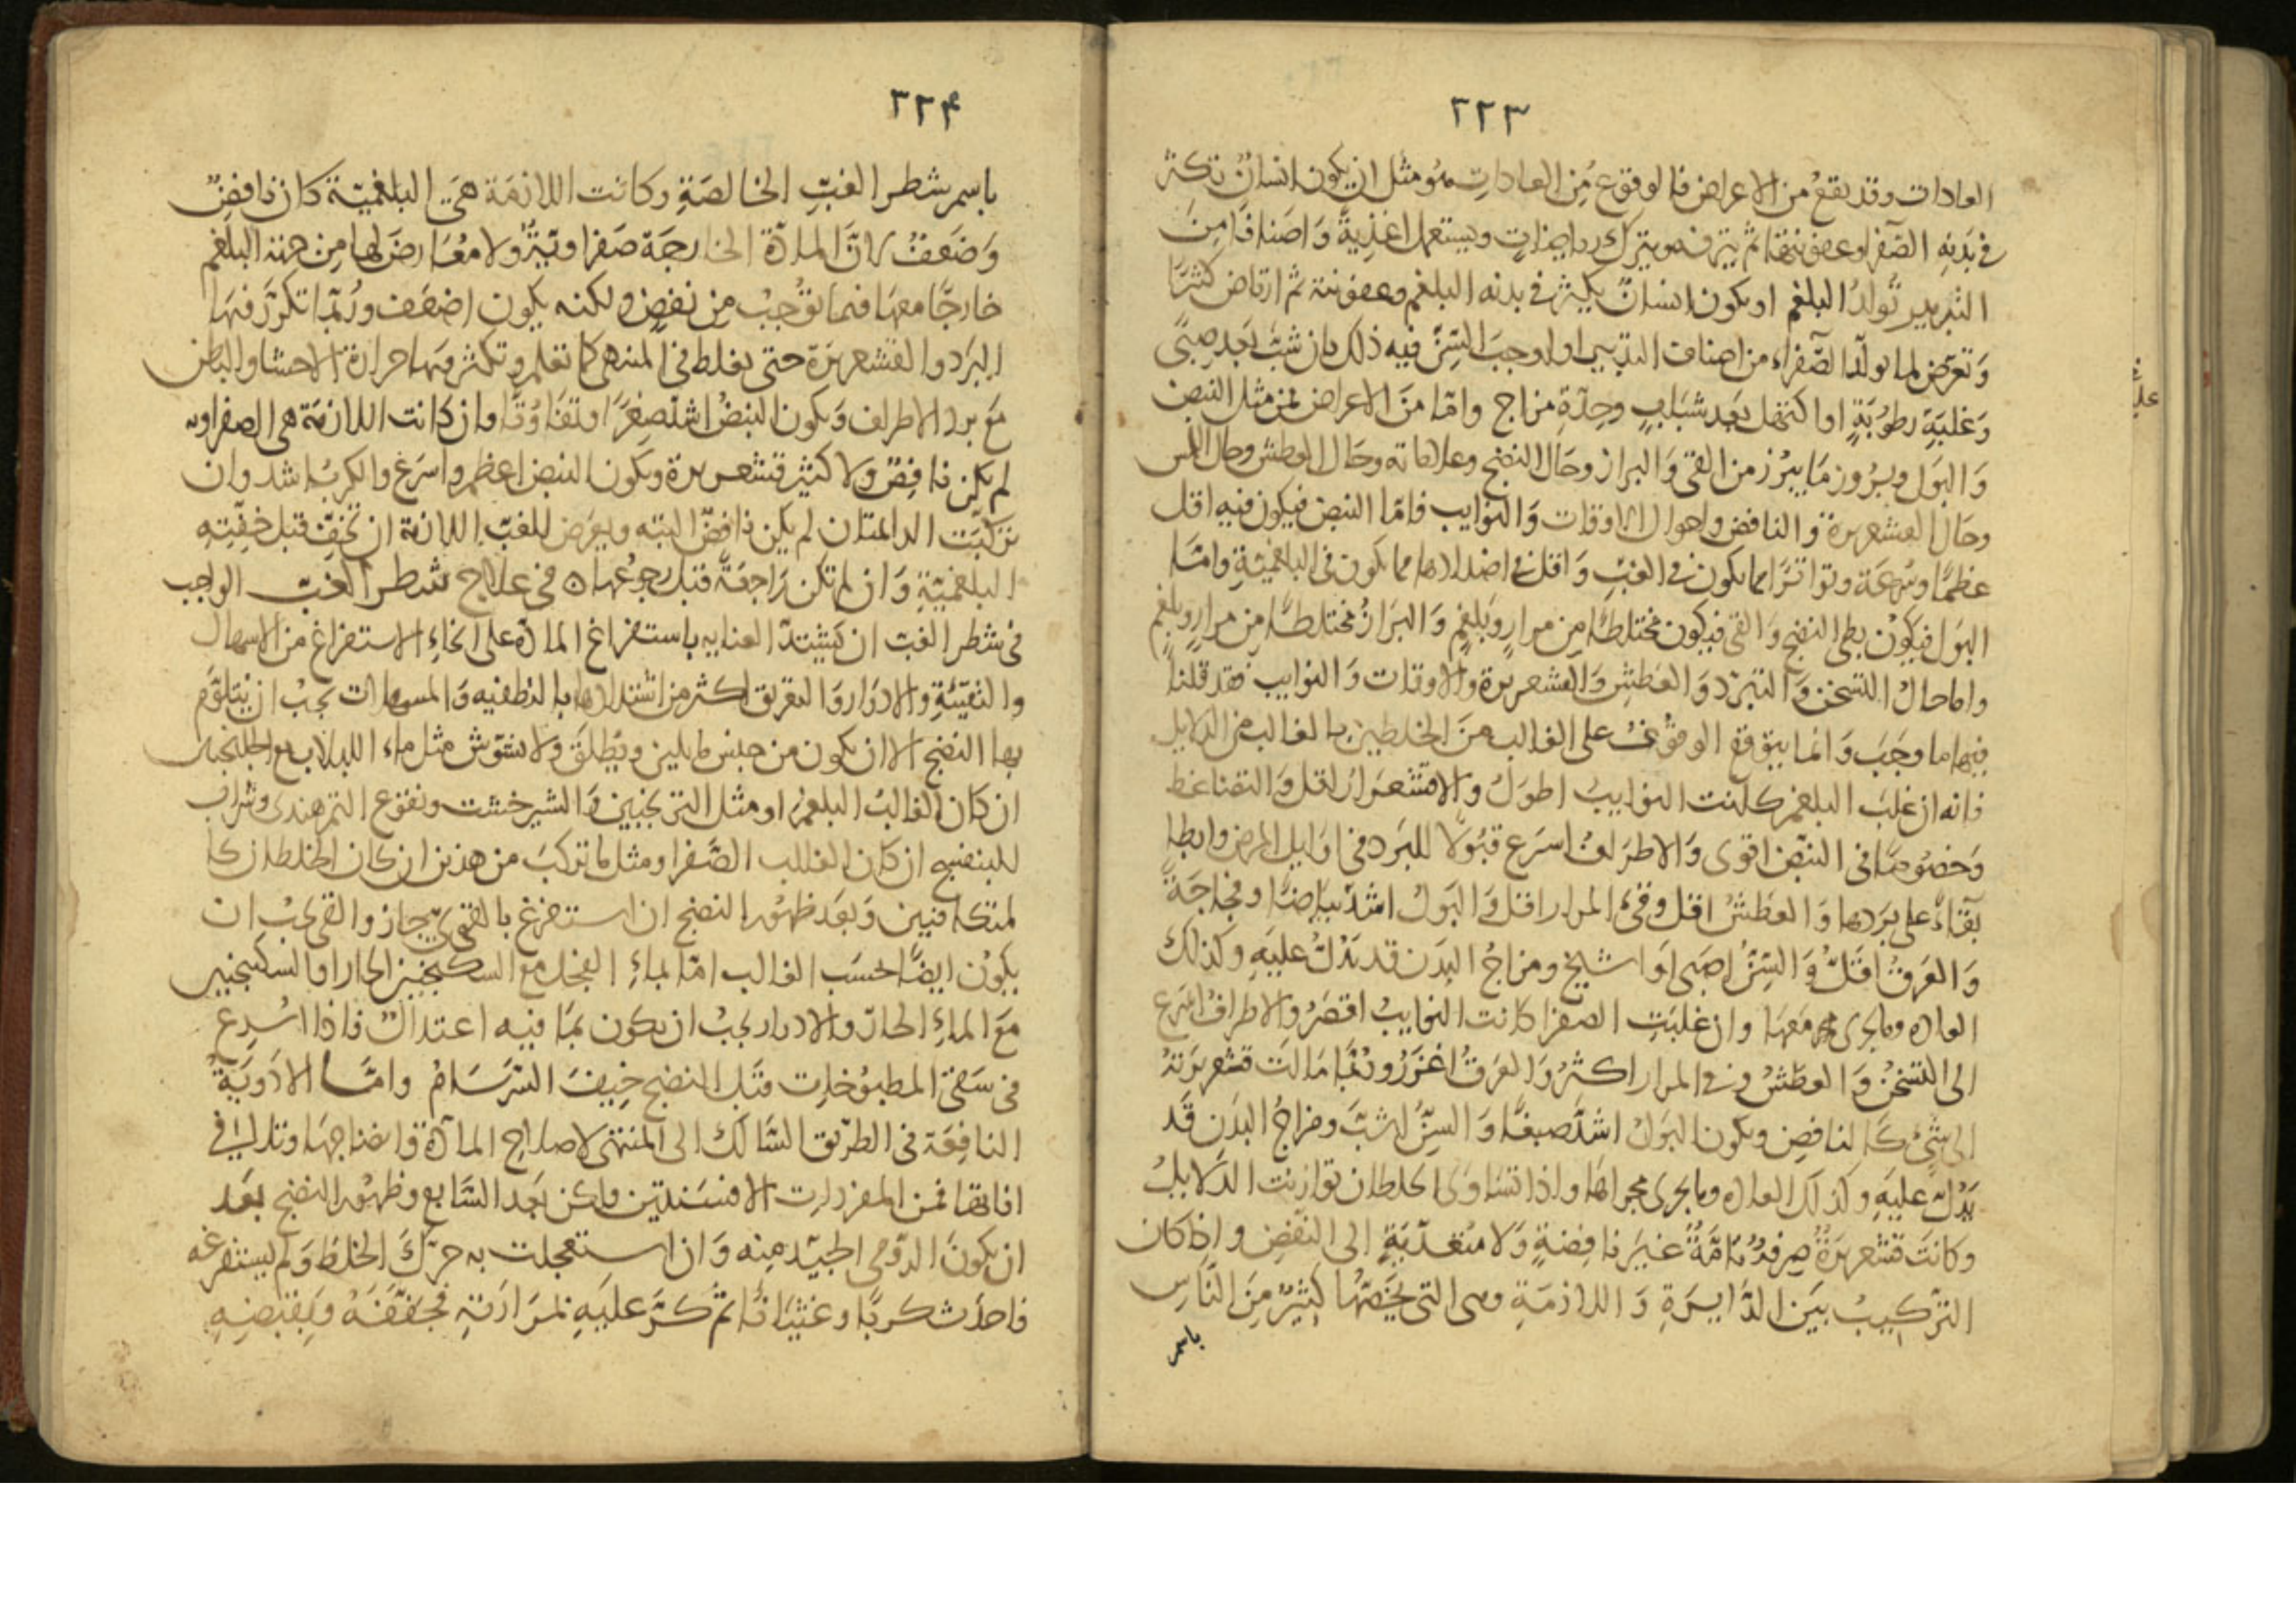 ٢٢٣
العادات وقد يقع من الاعراض فالوقوع من العادات هو مثل ان يكون انسان تكثر
في بدنه الصفرا وعفونتها ثم يترفه ويترك رياضات ويستعمل اغذية واصنافا من
التدبير تولد البلغم او يكون انسان يكثر في بدنه البلغم وعفونته ثم ارتاض كثيرا
وتعرض لما يولد الصفراء من اصناف التدبير او اوجب السن فيه ذلك بان شب بعد صبى
وغلبة رطوبة او اكتهل بعد شباب وحدة مزاج واما من الاعراض فمن مثل النبض
والبول وبروز ما يبرز من القى والبراز وحال النضج وعلاماته وحال العطش وحال اللمس
وحال القشعريرة والنافض واحوال الاوقات والنوايب فاما النبض فيكون فيه اقل
عظما وسرعة وتواترا مما يكون في الغب واقل في اضدادها مما يكون في البلغمية واما
البول فيكون بطى النضج والقى فيكون مختلطا من مرار وبلغم والبراز مختلطا من مرار وبلغم
واما حال التسخن والتبرد والعطش والقشعريرة والاوقات والنوايب فقد قلنا
فيها ما وجب وانما يتوقع الوقوف على الغالب من الخلطين بالغالب من الدلايل
فانه ان غلب البلغم كانت النوايب اطول والاقشعرار اقل والتضاغط
وخصوصا في النبض اقوى والاطراف اسرع قبولا للبرد في اوايل المرض وابطا
بقاء على بردها والعطش اقل وقى المرار اقل والبول اشد بياضا وفجاجة
والعرق اقل والسن صبى او شيخ ومزاج البدن قد يدل عليه وكذلك
العاده وما يجرى معها وان غلبت الصفرا كانت النوايب اقصر والاطراف اسرع
الى التسخن والعطش وقى المرار اكثر والعرق اغزر وربما مالت قشعريرته
الى شىء كالنافض ويكون البول اشد صبغا والسن اشب ومزاج البدن قد
يدل عليه وكذلك العاده وما يجرى مجراها واذا تساوى الخلطان توازنت الدلايل
وكانت قشعريرة صرفة تامة غير نافضة ولا متعدية الى النفض واذ كان
التركيب بين الدايرة واللازمة وهى التى يخصها كثير من الناس
باسم
٢٢۴
باسم شطر الغب الخالصة وكانت اللازمة هى البلغمية كان نافض
وضعف لان المادة الخارجة صفراوية ولا معارض لها من جهة البلغم
خارجا معها فيما توجب من نفض ولكنه يكون اضعف وربما تكرر فيها
البرد والقشعريرة حتى يغلط في المنتهى كما تعلم وتكثر معها حرارة الاحشا والباطن
مع برد الاطراف ويكون النبض اشد صغرا وتفاوتا وان كانت اللازمة هى الصفراويه
لم يكن نافض ولا كثير قشعريرة ويكون النبض اعظم واسرع والكرب اشد وان
تركبت الدائمتان لم يكن نافض البته ويعرض للغب اللازمة ان تخف قبل خفيته
البلغمية وان لم تكن راجعة قبل رجوعها ٥ في علاج شطر الغب الواجب
في شطر الغب ان تشتد العنايه باستفراغ المادة على انحاء الاستفراغ من الاسهال
والتقيئة والادرار والتعريق اكثر من اشتدادها بالتطفيه والمسهلات يجب ان يتلوم
بها النضج الا ان يكون من جنس ما يلين ويطلق ولا يشوش مثل ماء اللبلاب مع الجلنجبين
ان كان الغالب البلغم او مثل الترنجبين والشيرخشت ونقوع التمرهندى وشراب
البنفسج ان كان الغالب الصفرا ومثل ما تركب من هذين ان كان الخلطان كا
لمتكافيين وبعد ظهور النضج ان استفرغ بالقوى جاز والقى يجب ان
يكون ايضا بحسب الغالب اما بماء الفجل مع السكنجبين الحار او بالسكنجبين
مع الماء الحار والادرار يجب ان يكون بما فيه اعتدال فاذا اسرع
في سقى المطبوخات قبل النضج خيف السرسام واما الادوية
النافعة في الطريق السالك الى المنتهى لاصلاح المادة وانضاجها وتدارك
افاتها فمن المفردات الافسنتين ولكن بعد السابع وظهور النضج بعد
ان يكون الرومى الجيد منه وان استعجلت به حرك الخلط ولم يستفرغه
فاحدث كربا وغثيانا ثم كر عليه بمرارته فجففه وبقبضه